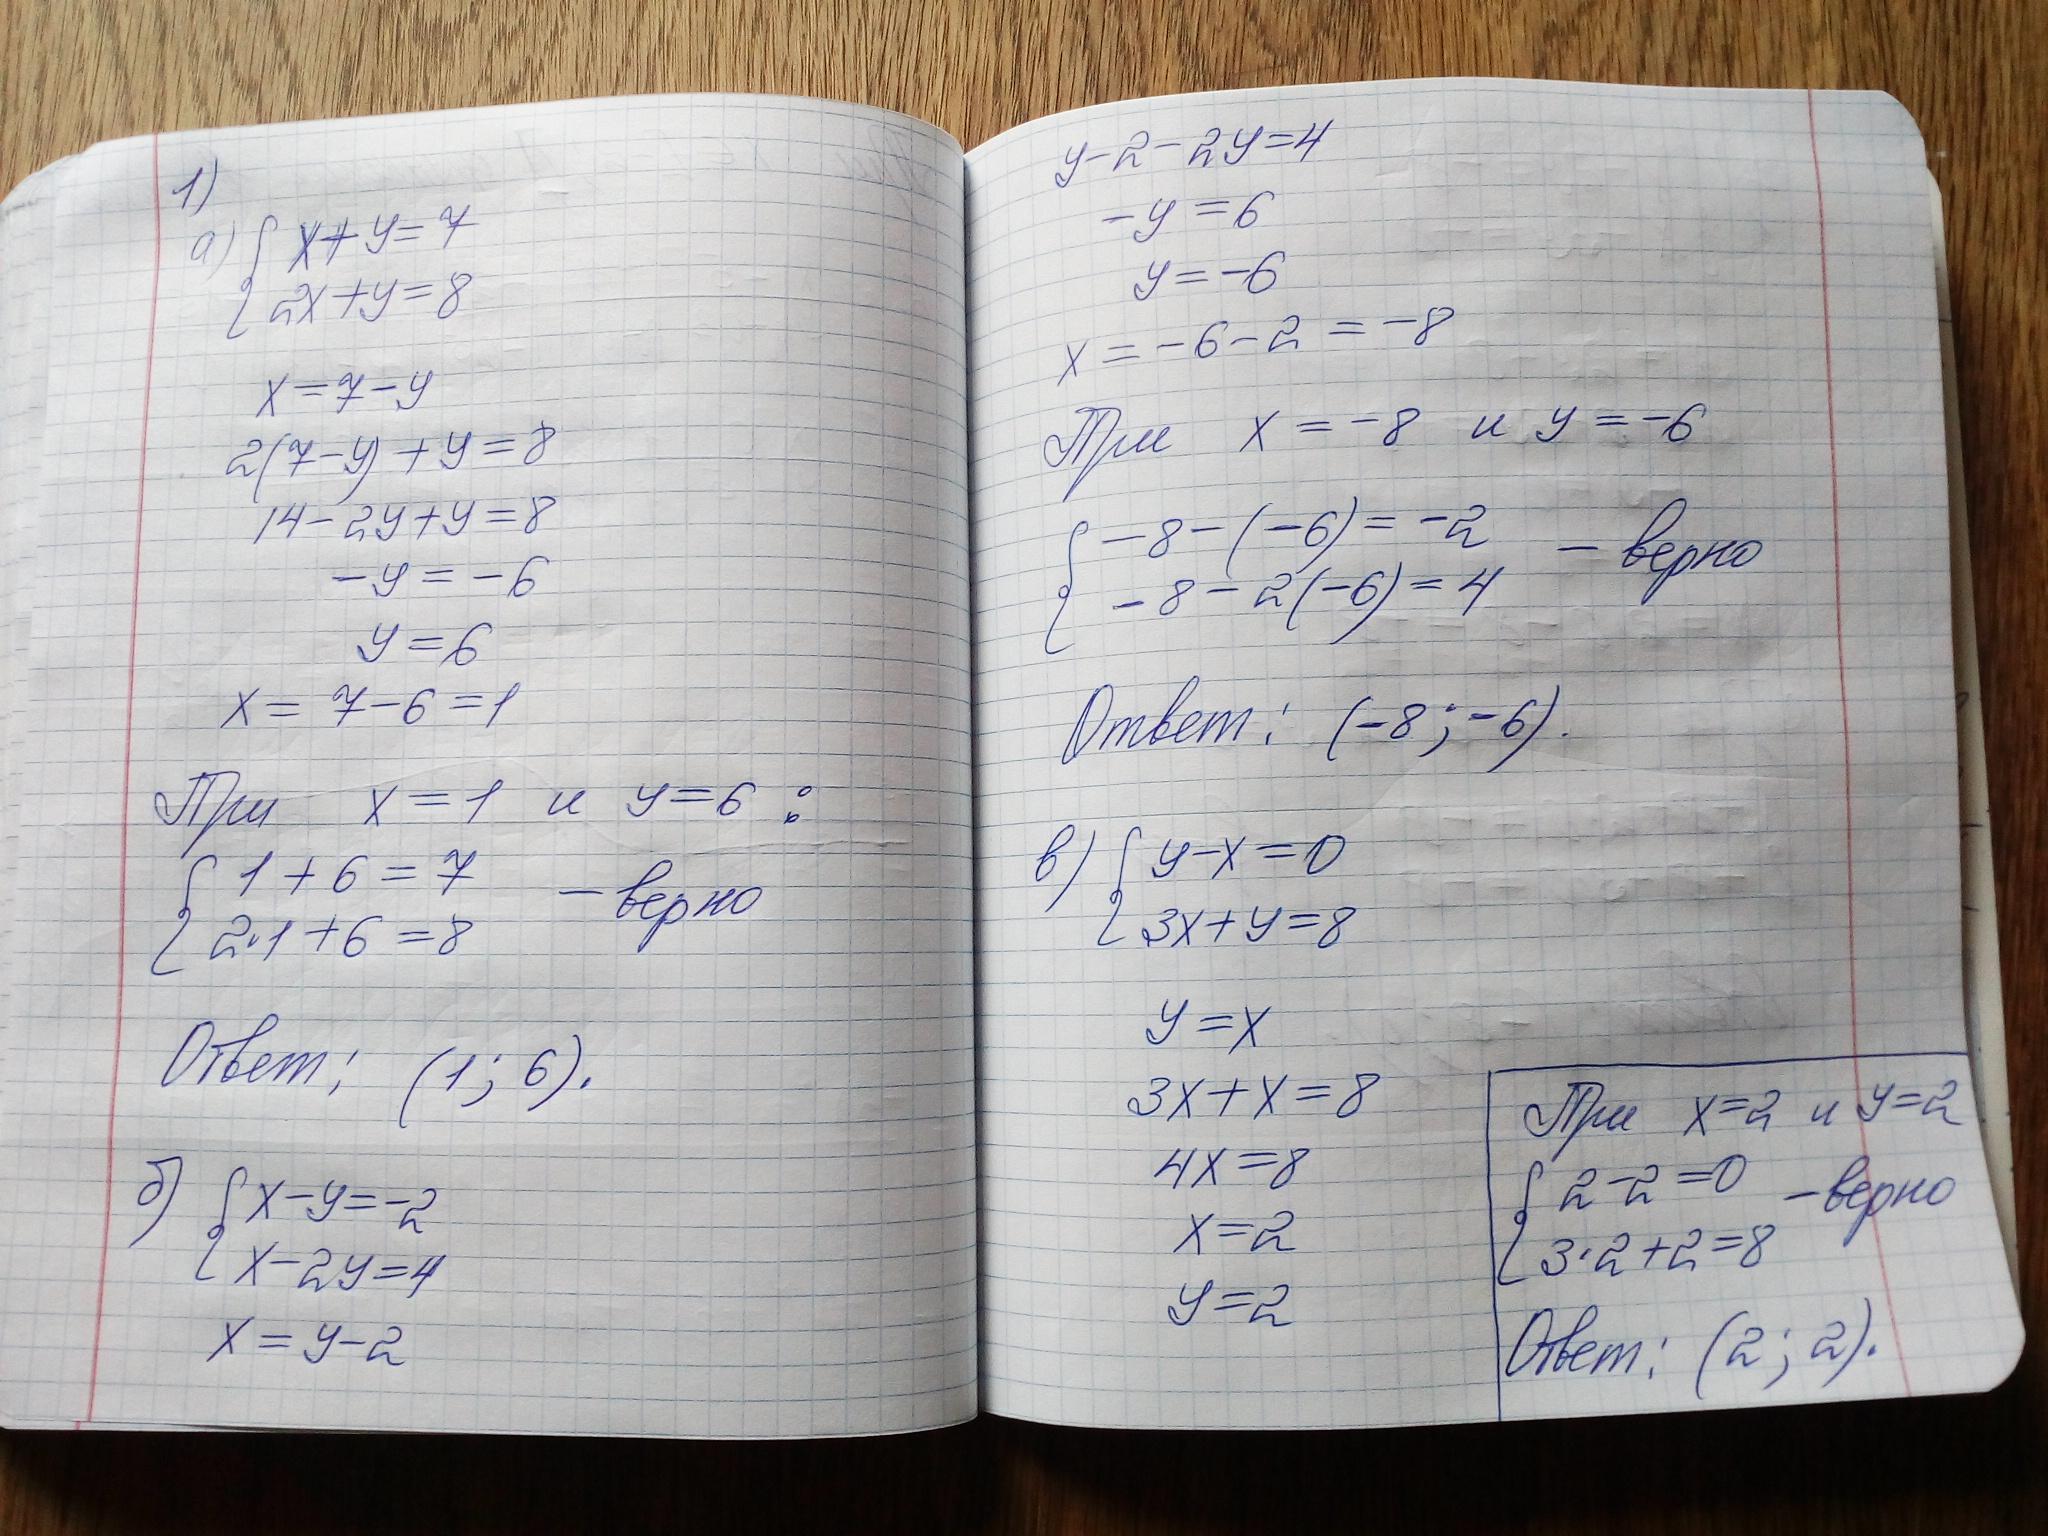 1)
а) { x+y=7
2x+y=8
x=7-y
2(7-y)+y=8
14-2y+y=8
-y=-6
y=6
x=7-6=1
При x=1 и y=6:
{ 1+6=7
2·1+6=8 - верно
Ответ: (1; 6).
б) { x-y=-2
x-2y=4
x=y-2
y-2-2y=4
-y=6
y=-6
x=-6-2=-8
При x=-8 и y=-6
{ -8-(-6)=-2
-8-2(-6)=4 - верно
Ответ: (-8; -6).
в) { y-x=0
3x+y=8
y=x
3x+x=8
4x=8
x=2
y=2
При x=2 и y=2
{ 2-2=0
3·2+2=8 - верно
Ответ: (2; 2).